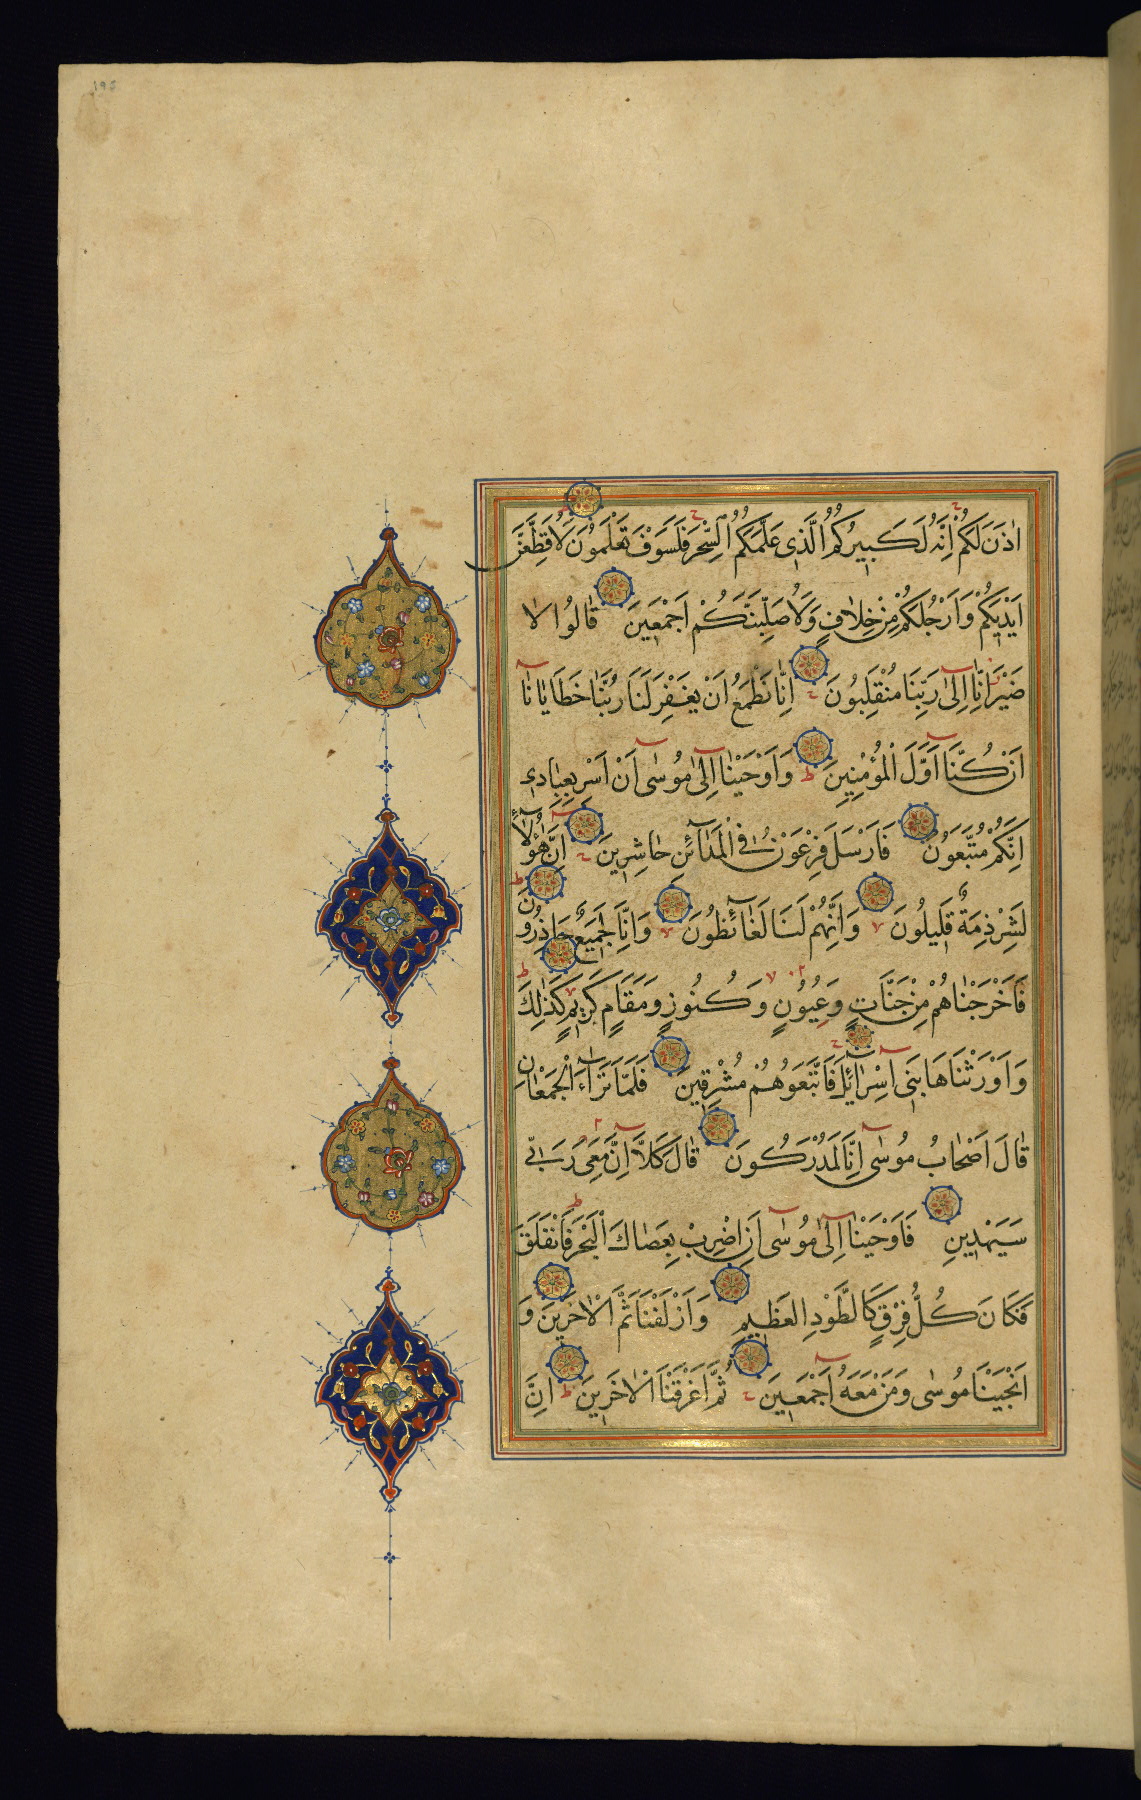 اٰذَنَ لَكُمْ اِنَّهُ لَكَبِيرُكُمُ الَّذِى عَلَّمَكُمُ السِّحْرَ فَلَسَوْفَ تَعْلَمُونَ لَاُقَطِّعَنَّ
اَيْدِيَكُمْ وَاَرْجُلَكُمْ مِنْ خِلَافٍ وَلَاُصَلِّبَنَّكُمْ اَجْمَعِينَ قَالُوا لَا
ضَيْرَ اِنَّا اِلٰى رَبِّنَا مُنْقَلِبُونَ اِنَّا نَطْمَعُ اَنْ يَغْفِرَ لَنَا رَبُّنَا خَطَايَانَا
اَنْ كُنَّا اَوَّلَ الْمُؤْمِنِينَ وَاَوْحَيْنَا اِلٰى مُوسٰى اَنْ اَسْرِ بِعِبَادِى
اِنَّكُمْ مُتَّبَعُونَ فَاَرْسَلَ فِرْعَوْنُ فِى الْمَدَائِنِ حَاشِرِينَ اِنَّ هٰؤُلَاءِ
لَشِرْذِمَةٌ قَلِيلُونَ وَاِنَّهُمْ لَنَا لَغَائِظُونَ وَاِنَّا لَجَمِيعٌ حَاذِرُونَ
فَاَخْرَجْنَاهُمْ مِنْ جَنَّاتٍ وَعُيُونٍ وَكُنُوزٍ وَمَقَامٍ كَرِيمٍ كَذٰلِكَ
وَاَوْرَثْنَاهَا بَنِى اِسْرَائِيلَ فَاَتْبَعُوهُمْ مُشْرِقِينَ فَلَمَّا تَرَاءَ الْجَمْعَانِ
قَالَ اَصْحَابُ مُوسٰى اِنَّا لَمُدْرَكُونَ قَالَ كَلَّا اِنَّ مَعِىَ رَبِّى
سَيَهْدِينِ فَاَوْحَيْنَا اِلٰى مُوسٰى اَنِ اضْرِبْ بِعَصَاكَ الْبَحْرَ فَانْفَلَقَ
فَكَانَ كُلُّ فِرْقٍ كَالطَّوْدِ الْعَظِيمِ وَاَزْلَفْنَا ثَمَّ الْاٰخَرِينَ وَ
اَنْجَيْنَا مُوسٰى وَمَنْ مَعَهُ اَجْمَعِينَ ثُمَّ اَغْرَقْنَا الْاٰخَرِينَ اِنَّ